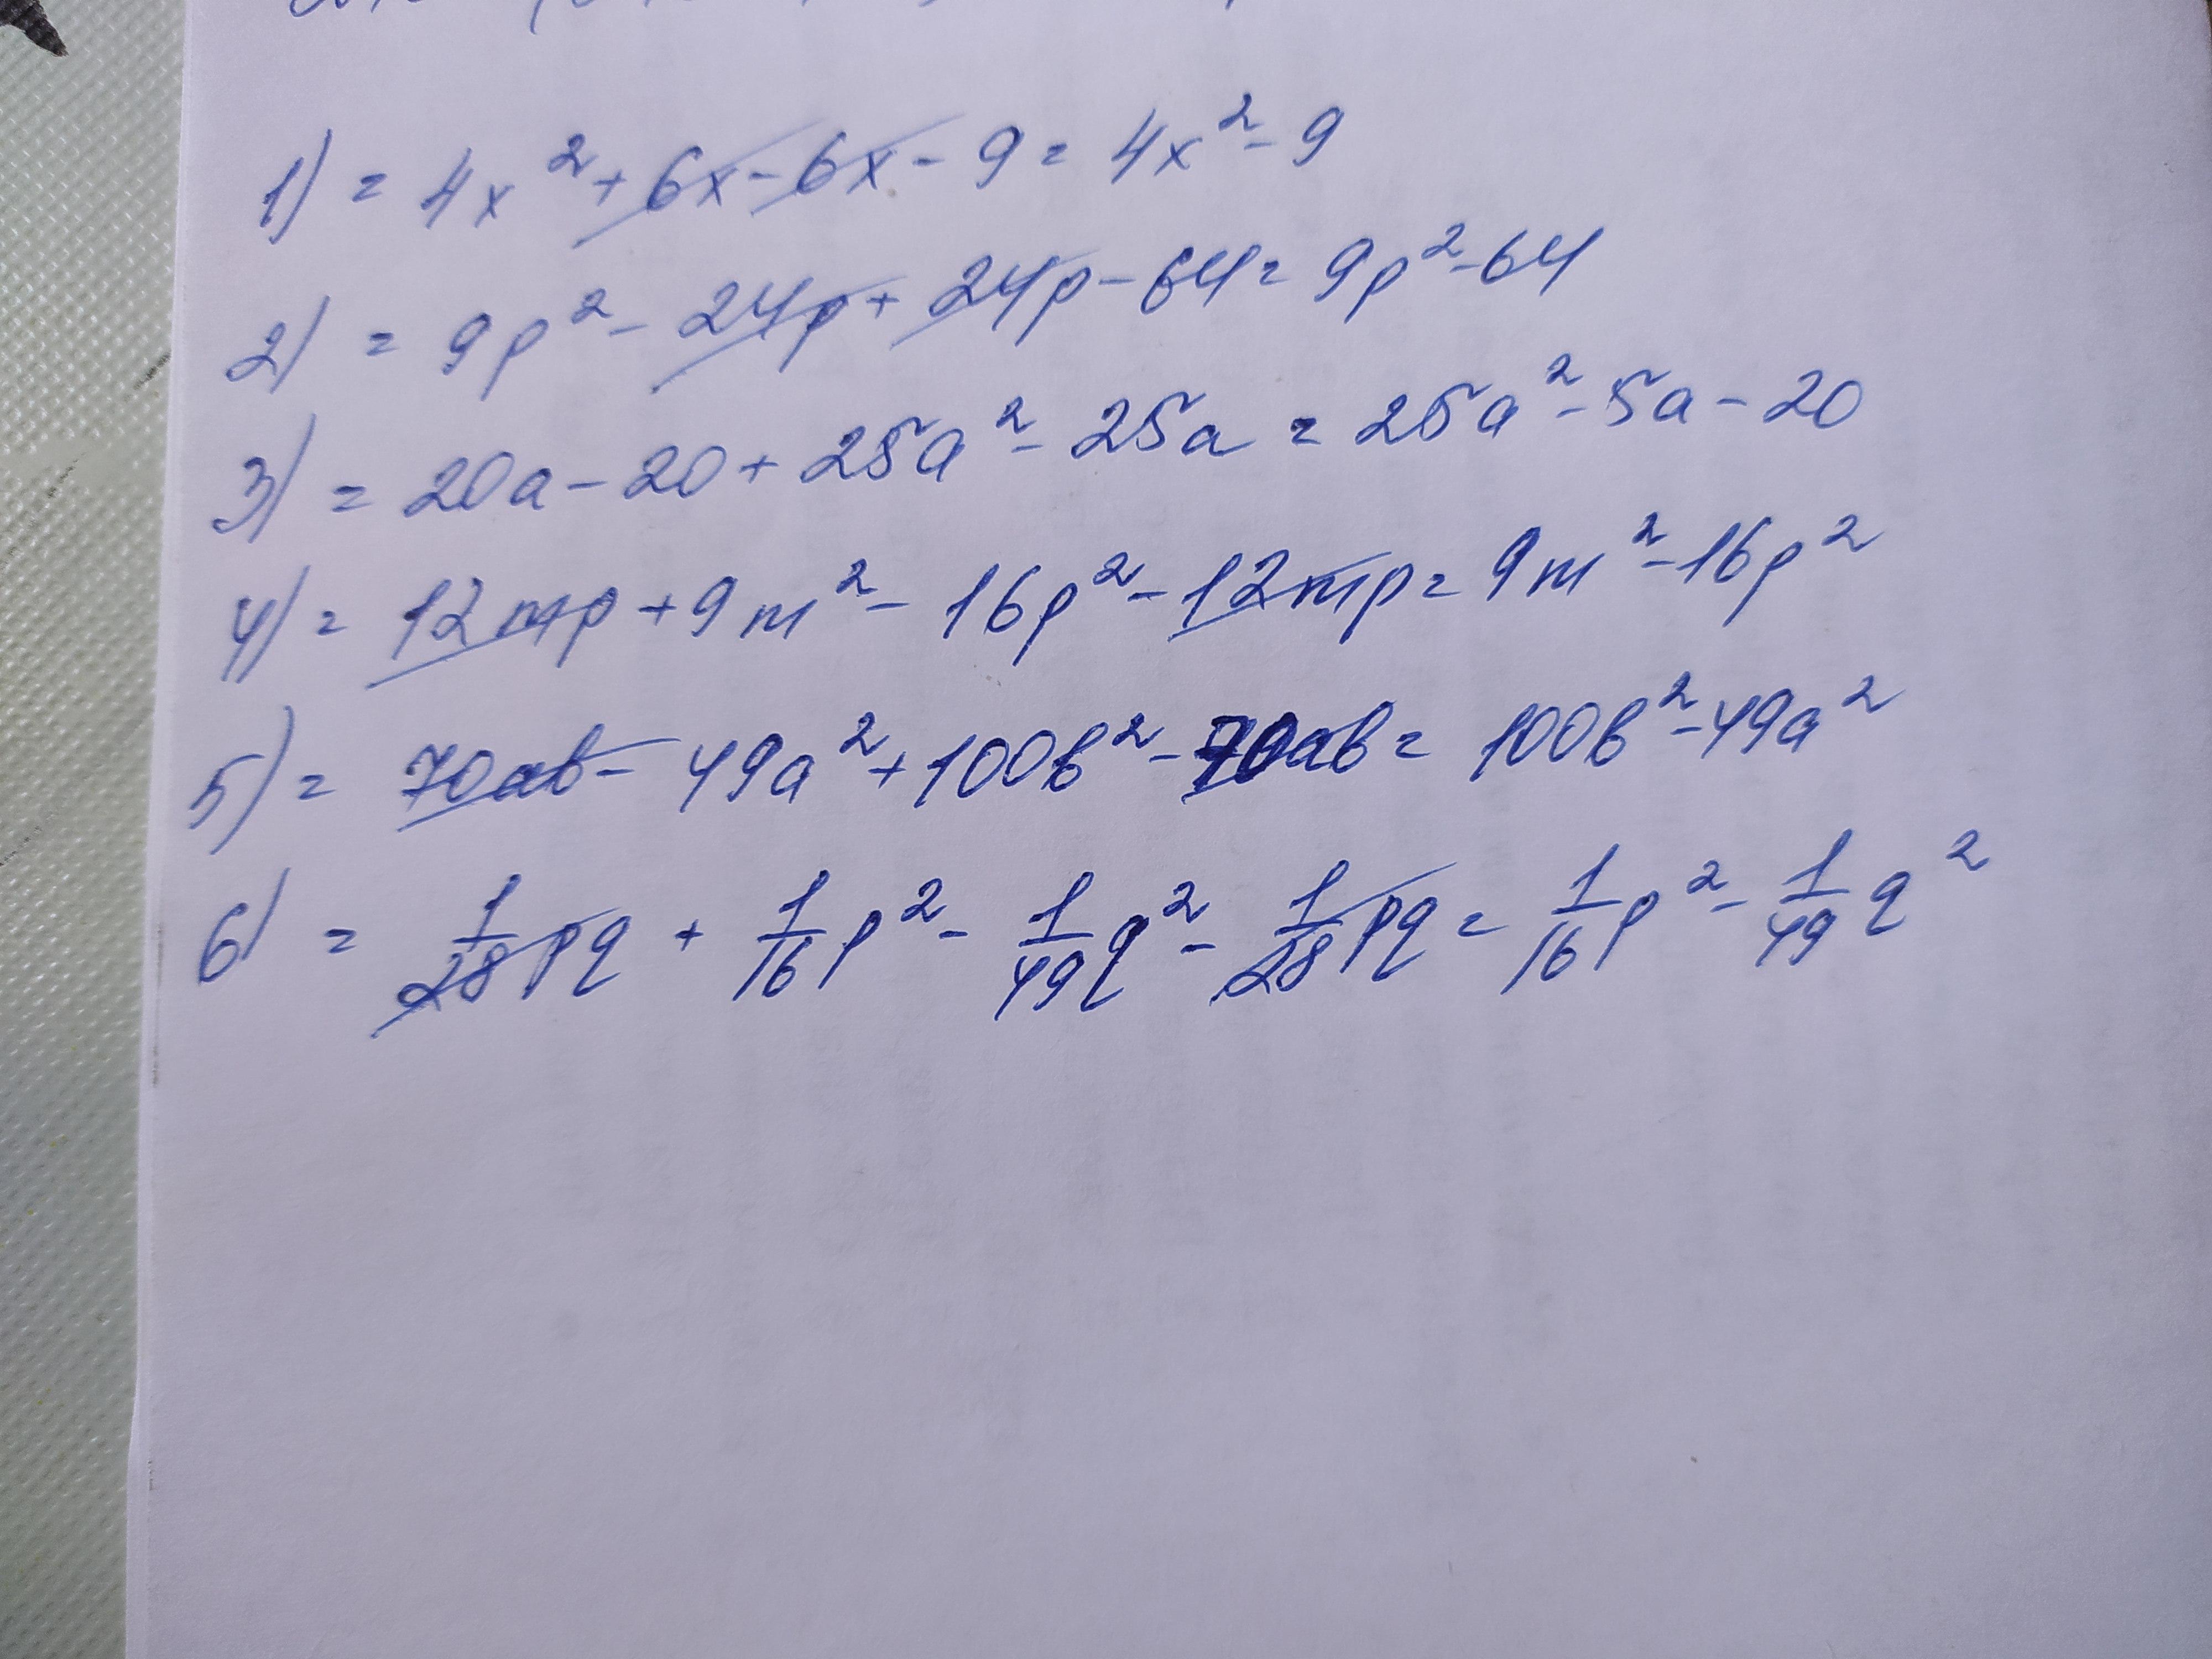 1) = 4x² + 6x - 6x - 9 = 4x² - 9
2) = 9p² - 24p + 24p - 64 = 9p² - 64
3) = 20a - 20 + 25a² - 25a = 25a² - 5a - 20
4) = 12mp + 9m² - 16p² - 12mp = 9m² - 16p²
5) = 70ab - 49a² + 100b² - 70ab = 100b² - 49a²
6) = 1/28 pq + 1/16 p² - 1/49 q² - 1/28 pq = 1/16 p² - 1/49 q²